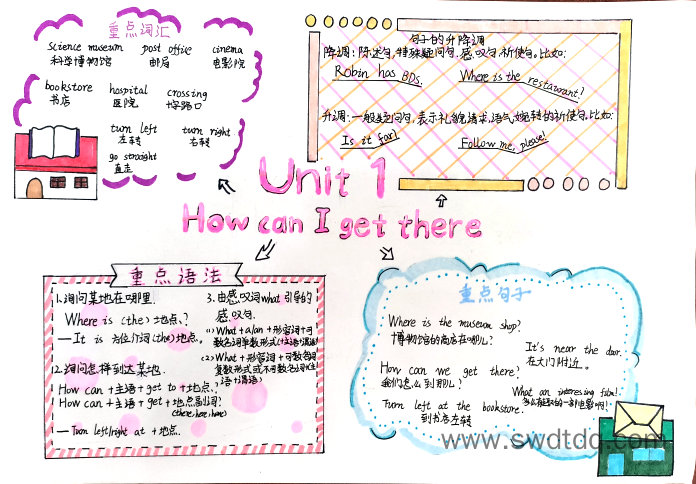 重点词汇
science museum post office cinema
科学博物馆 邮局 电影院
bookstore hospital crossing
书店 医院 十字路口
turn left turn right
左转 右转
go straight
直走
句子的升降调
降调:陈述句,特殊疑问句,感叹句,祈使句。比如:
Robin has BDs. Where is the restaurant?
升调:一般疑问句,表示礼貌请求,语气婉转的祈使句,比如:
Is it far? Follow me, please!
Unit 1
How can I get there
重点语法
1.询问某地在哪里.
Where is (the) 地点?
—It is 方位介词(the)地点。
2.询问怎样到达某地.
How can +主语+get to +地点?
How can +主语+get +地点副词?
(there, here, home)
—Turn left/right at +地点.
3.由感叹词what引导的
感叹句.
(1)What +a/an +形容词+可
数名词单数形式(+主语+谓语)
(2)What +形容词+可数名词
复数形式或不可数名词(+主
语+谓语)
重点句子
Where is the museum shop?
博物馆的商店在哪儿?
It's near the door.
在大门附近。
How can we get there?
我们怎么到那儿?
What an interesing film!
多么有趣的一部电影啊!
Turn left at the bookstore.
到书店左转
www.swdtdq.com